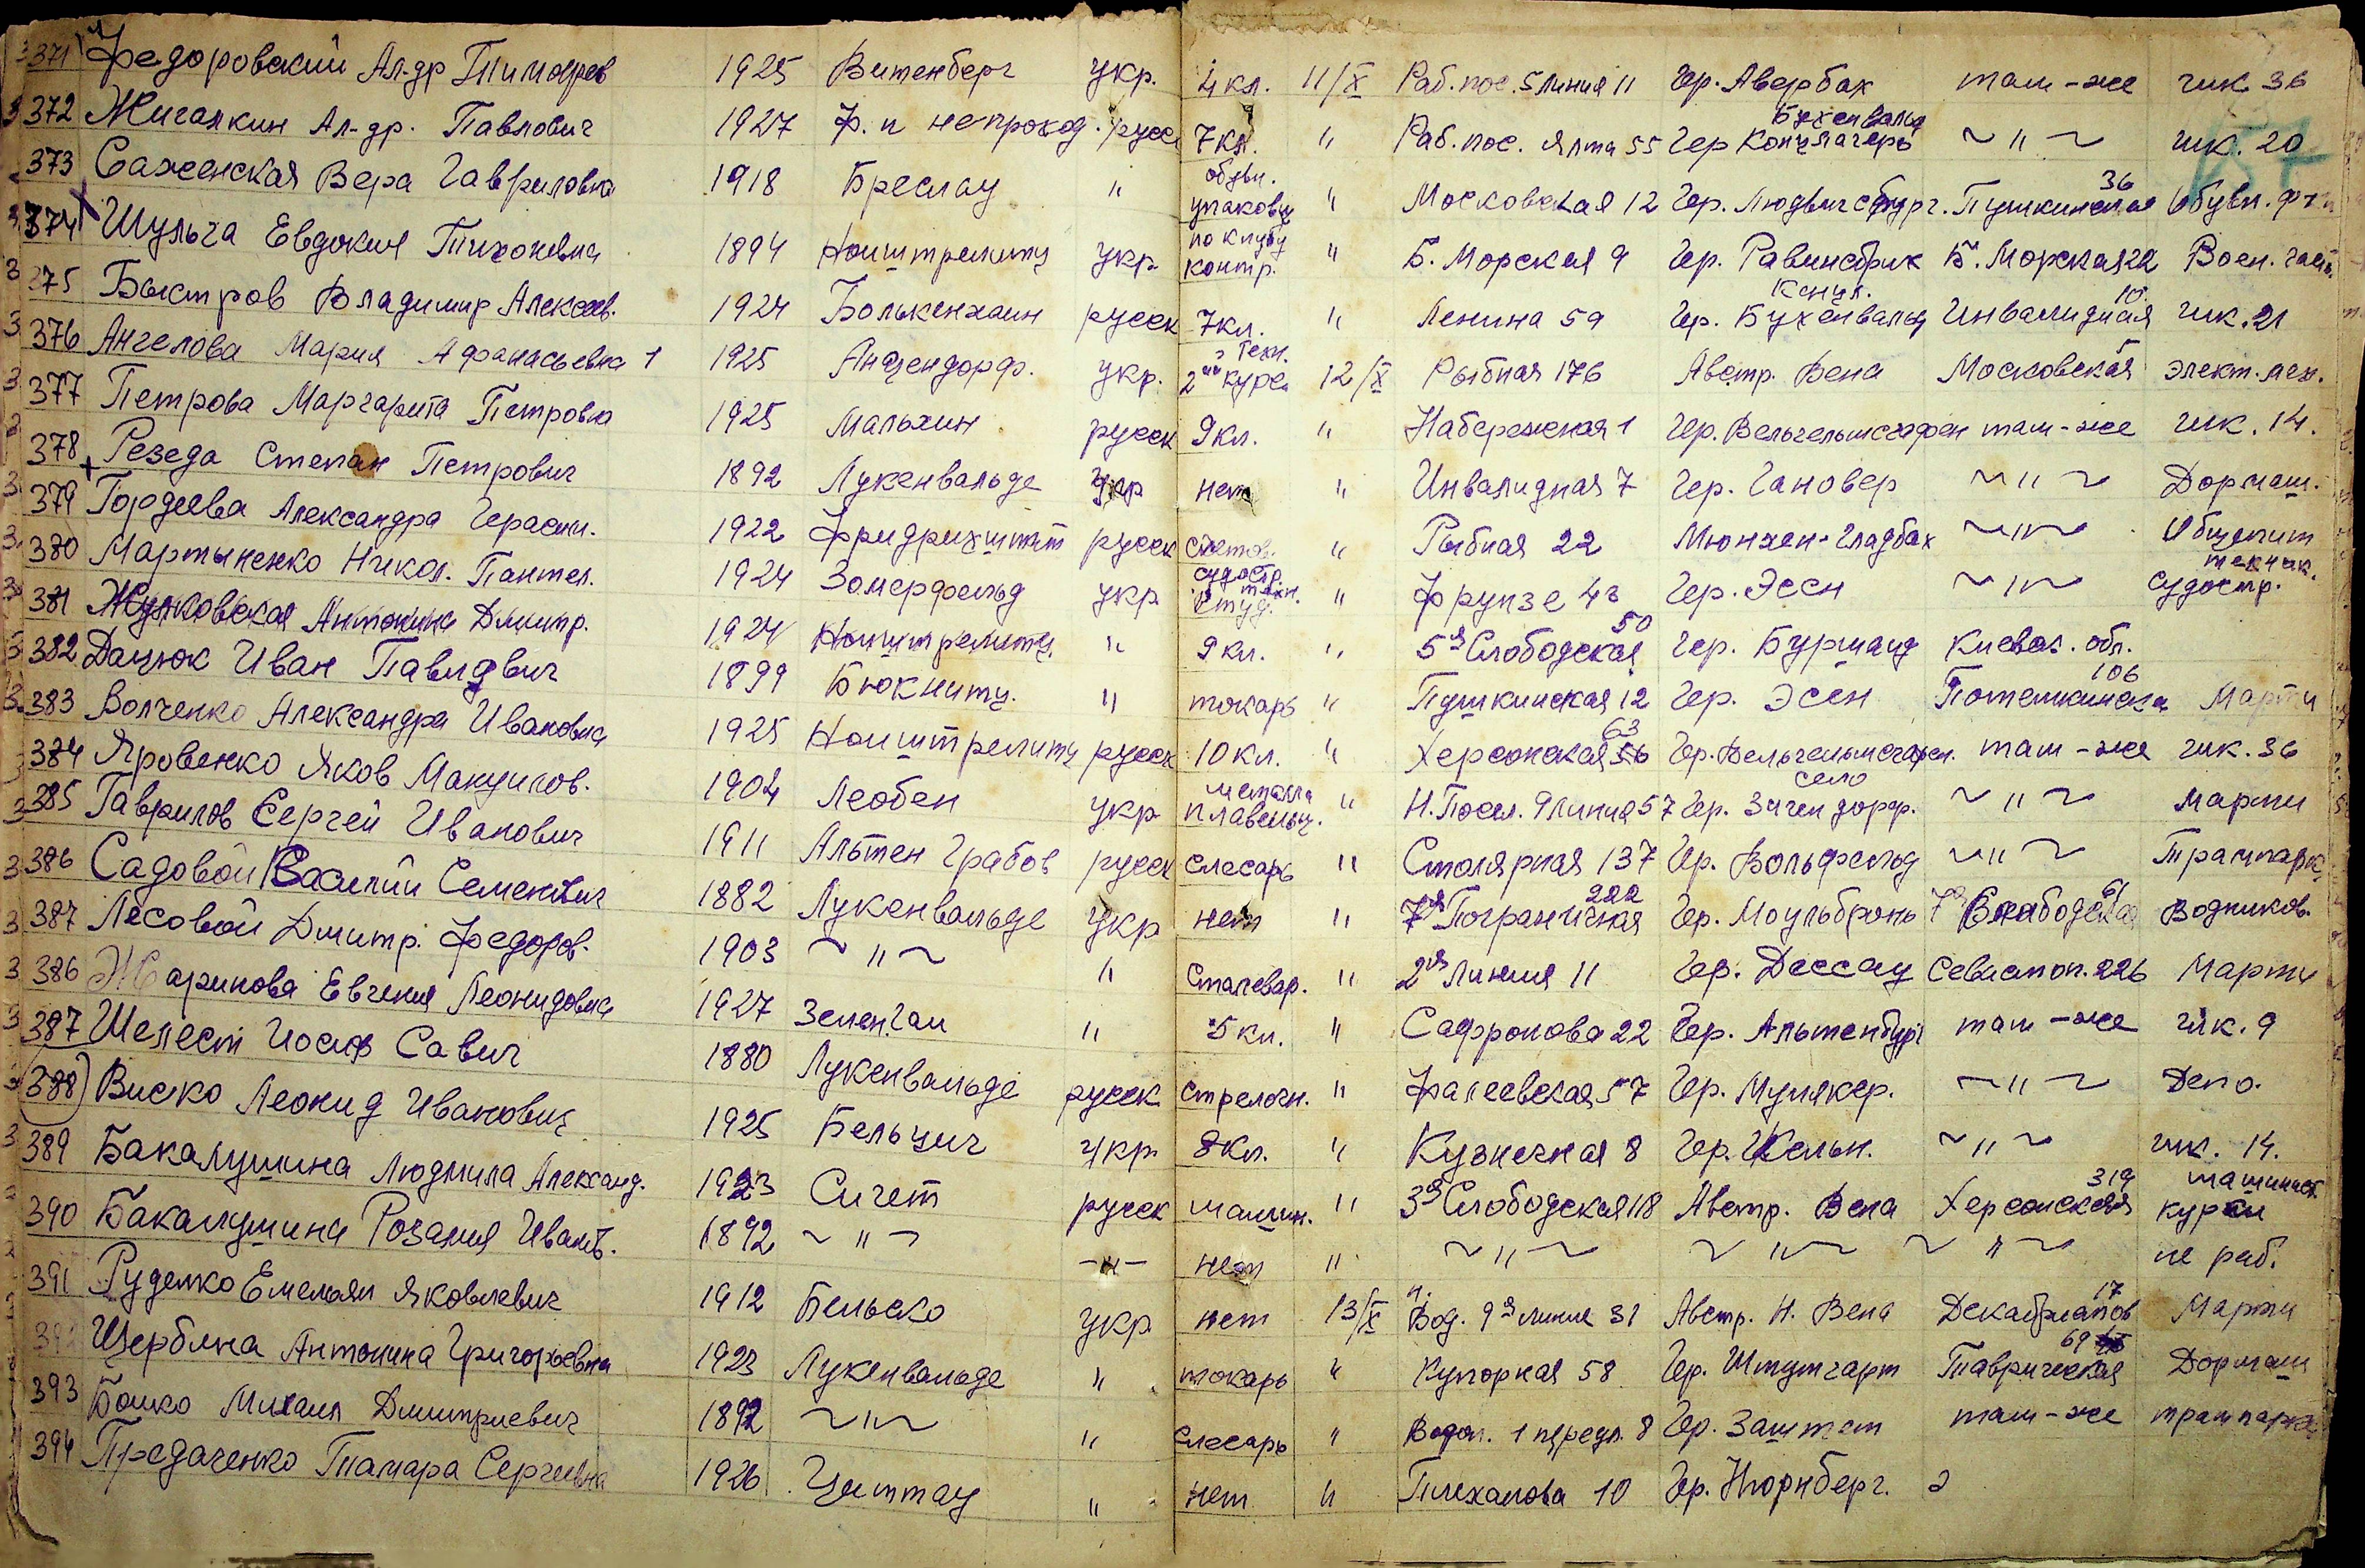 371 Федоровский Ал-др Тимофеев 1925 Витенберг укр. 4 кл. 11/X Раб. пос. 5 линия 11 Гер. Авербах там-же шк. 36
372 Жигалкин Ал-др. Павлович 1927 Ф. п непроход. русск 7 кл. " Раб. пос. Ялта 55 Гер Концлагерь Бухенвальд ~ " ~ шк. 20
373 Саженская Вера Гавриловна 1918 Бреслау " обувн. упаковщ " Московская 12 Гер. Людвигсбург. Пушкинская 36 Обувн. ф-ка
374 Шульга Евдокия Тихоновна 1894 Нойштрелитц укр. по клубу контр. " Б. Морская 9 Гер. Равинсбрик Б. Морская 22 Воен. часть
375 Быстров Владимир Алексеев. 1924 Болькенхаин русск 7 кл. " Ленина 59 Гер. Концл. Бухенвальд Инвалидная 10 шк. 21
376 Ангелова Мария Афанасьевна 1 1925 укр. техн. 2ой курс 12/X Рыбная 176 Австр. Вена Московская 5 элект. мех.
377 Петрова Маргарита Петровна 1925 Мальхин русск 9 кл. " Набережная 1 Гер. Вельгельмсгафен там-же шк. 14.
378 Резеда Степан Петрович 1892 Лукенвальде укр нет " Инвалидная 7 Гер. Гановер ~ " ~ Дормаш.
379 Гордеева Александра Герасим. 1922 Фридрихштат русск счетов. " Рыбная 22 Мюнхен-Гладбах ~ " ~ Общепит
380 Мартыненко Никол. Пантел. 1924 Зомерфельд укр судостр. техн. студ. " Фрунзе 43 Гер. Эссн ~ " ~ техник. судостр.
381 Жулковская Антонина Дмитр. 1924 Нойштрелитц " 9 кл. " 5я Слободская 50 Гер. Бурманд Киевск. обл.
382 Дацюк Иван Павлович 1899 Бюкнитц. " токарь " Пушкинская 12 Гер. Эсен Потемкинска 106 Марти
383 Волченко Александра Ивановна 1925 Нойштрелитц русск 10 кл. " Херсонская 56 63 Гер. Вельгельмсгафен. там-же шк. 36
384 Яровенко Яков Мануилов. 1904 Леобен укр металла плавельщ. " Н. Посел. 9 линия 57 Гер. село Зиген дорф. ~ " ~ Марти
385 Гаврилов Сергей Иванович 1911 Альтен Грабов русск слесарь " Столярная 137 Гер. Вольфельд ~ " ~ Трампарк
386 Садовой Василий Семенович 1882 Лукенвальде укр нет " 7я Пограничная 222 Гер. Моульбронь 7 Слободская 61 Водников.
387 Лесовой Дмитр. Федоров. 1903 ~ " ~ " Сталевар. " 2я Линия 11 Гер. Дессау Севастоп. 226 Марти
386 Жаринова Евгения Леонидовна 1927 Зелен.Гам " 5 кл. " Сафронова 22 Гер. Альтенбург там-же шк. 9
387 Шелест Иосиф Савич 1880 Лукенвальде русск стрелочн. " Фалеевская 57 Гер. Мулякер. ~ " ~ Депо.
388 Виско Леонид Иванович 1925 Бельциг укр. 8 кл. " Кузнечная 8 Гер. Кельн. ~ " ~ шк. 14.
389 Бакалушина Людмила Александ. 1923 Сигет русск машин. " 3я Слободская 118 Австр. Вена Херсонская 319 машинист. курсы
390 Бакалушина Розалия Иванов. 1892 ~ " ~ -"- нет " ~ " ~ ~ " ~ ~ " ~ не раб.
391 Руденко Емельян Яковлевич 1912 Бельско укр нет 13/X Вод. 9я линия 31 Австр. Н. Вена Декабристов 17 Марти
392 Щербина Антонина Григорьевна 1923 Лукенвальде " токарь " Купорная 58 Гер. Штутгарт Таврическая 69 Дормаш
393 Бойко Михаил Дмитриевич 1892 ~ " ~ " слесарь " Водоп. 1 передл. 8 Гер. Заштет там-же трампарк
394 Предаченко Тамара Сергеевна 1926 Циттау " нет " Плеханова 10 Гер. Нюрнберг. 2